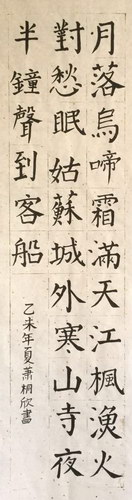 月落烏啼霜滿天江楓漁火
對愁眠姑蘇城外寒山寺夜
半鐘聲到客船
乙未年夏蕭桐欣書